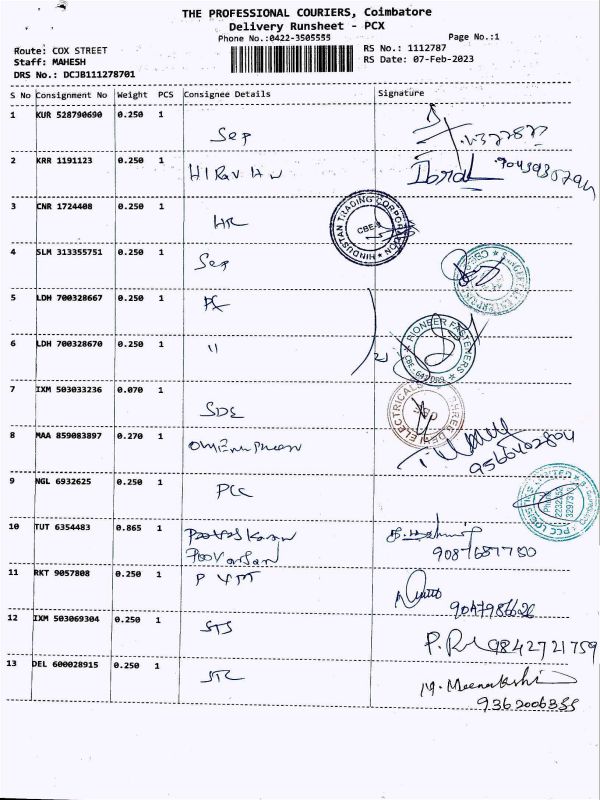 THE PROFESSIONAL COURIERS, Coimbatore
Delivery Runsheet - PCX
Phone No.:0422-3505555
Page No.:1
Route: COX STREET
RS No.: 1112787
Staff: MAHESH
RS Date: 07-Feb-2023
DRS No.: DCJB111278701
S No Consignment No Weight PCS Consignee Details Signature
1 KUR 528790690 0.250 1 Sep
2 KRR 1191123 0.250 1
3 CNR 1724408 0.250 1 HR
HINDUSTAN TRADING CORPORATION
CBE-1
4 SLM 313355751 0.250 1 Sep
5 LDH 700328667 0.250 1 PF
6 LDH 700328670 0.250 1 "
PIONEER FASTENERS
7 IXM 503033236 0.070 1 SDE
SHREE DEVI ELECTRICALS
8 MAA 859083897 0.270 1
9566402804
9 NGL 6932625 0.250 1 PCC
PCC LOGISTICS LIMITED
10 TUT 6354483 0.865 1
Poovarasan
9087681780
11 RKT 9057808 0.250 1 P VPT
9047986626
12 IXM 503069304 0.250 1 STS
9842721759
13 DEL 600028915 0.250 1 STC
M. Meenakshi
9362006355